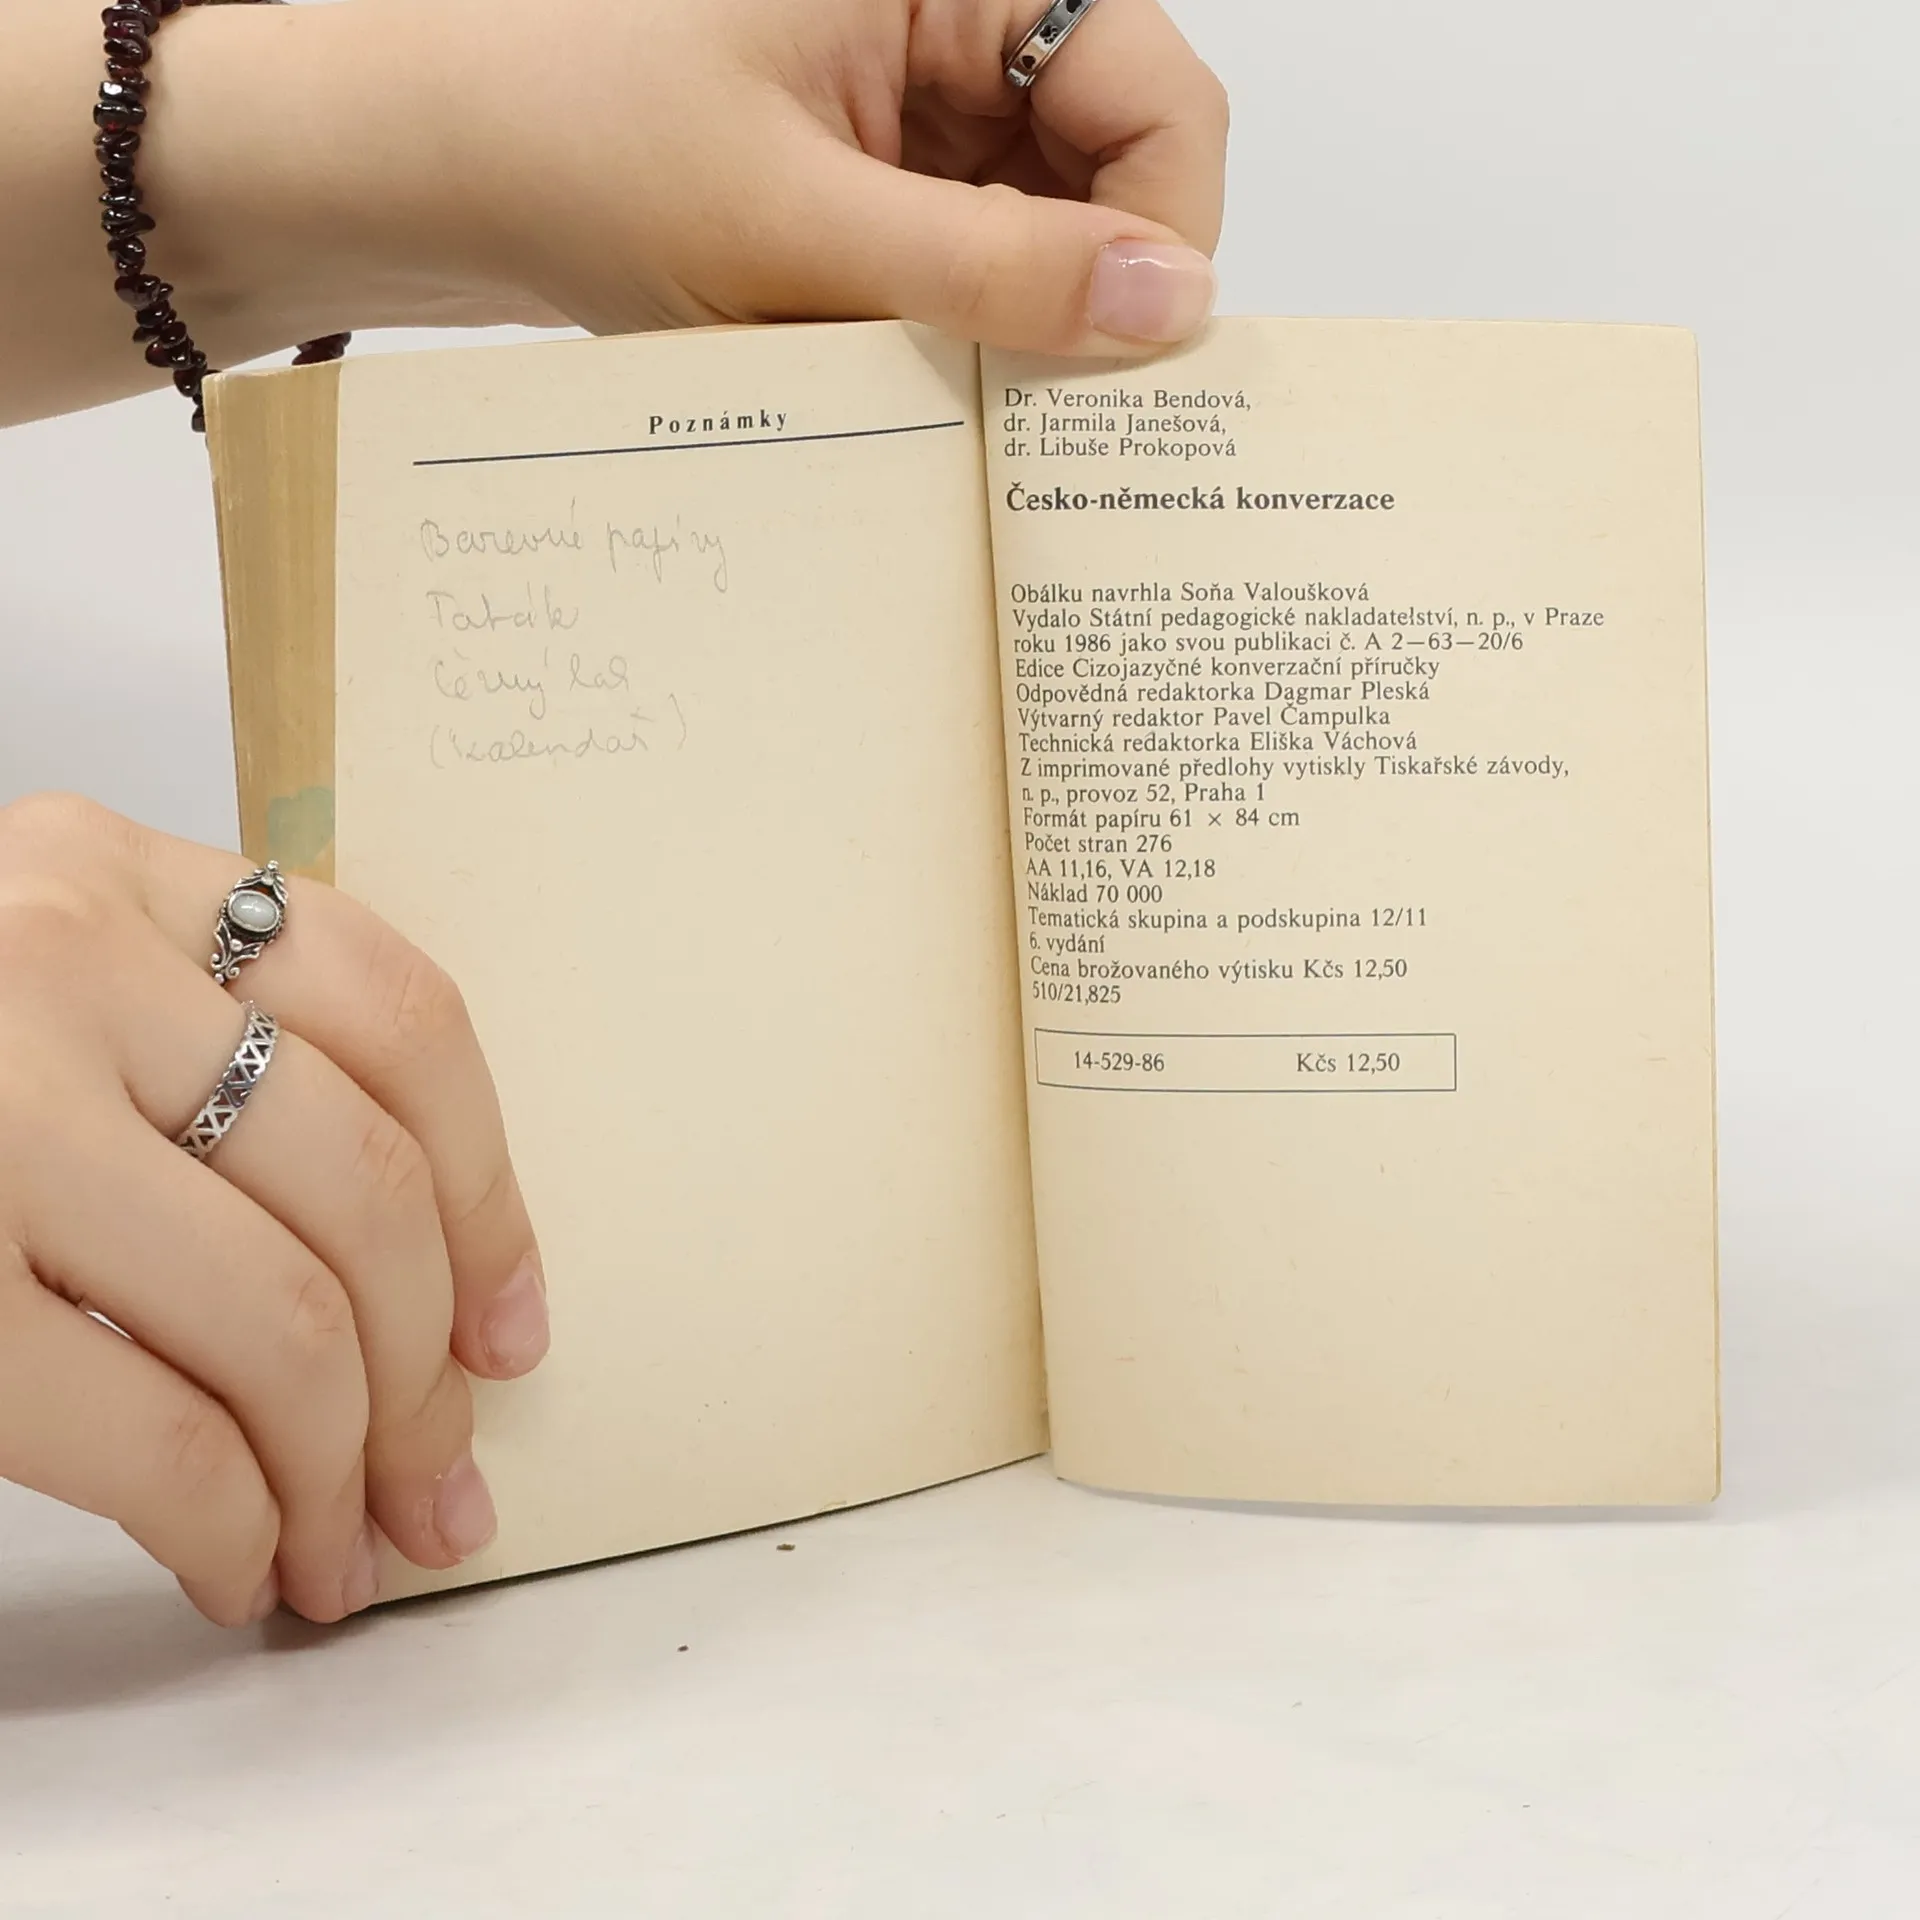 Poznámky
Barevné papíry
Tabák
Černý lak
(kalendář)
Dr. Veronika Bendová,
dr. Jarmila Janešová,
dr. Libuše Prokopová
Česko-německá konverzace
Obálku navrhla Soňa Valoušková
Vydalo Státní pedagogické nakladatelství, n. p., v Praze
roku 1986 jako svou publikaci č. A 2—63—20/6
Edice Cizojazyčné konverzační příručky
Odpovědná redaktorka Dagmar Pleská
Výtvarný redaktor Pavel Čampulka
Technická redaktorka Eliška Váchová
Z imprimované předlohy vytiskly Tiskařské závody,
n. p., provoz 52, Praha 1
Formát papíru 61 × 84 cm
Počet stran 276
AA 11,16, VA 12,18
Náklad 70 000
Tematická skupina a podskupina 12/11
6. vydání
Cena brožovaného výtisku Kčs 12,50
510/21,825
14-529-86 Kčs 12,50